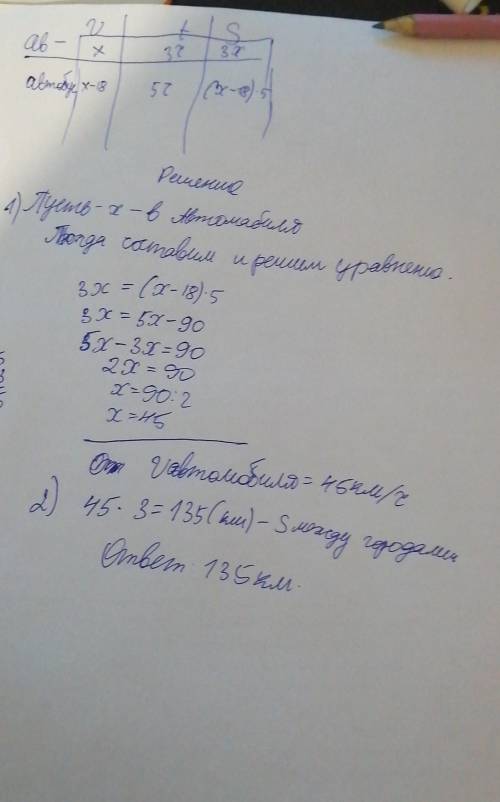 V t S
ав – x 3г 3x
автобус x-18 5г (x-18)·5
Решение
1) Пусть - x - в Автомабиля
Тогда составим и решим уравнение.
3x = (x-18)·5
3x = 5x-90
5x-3x=90
2x = 90
x=90:2
x=45
Vавтомобиля = 45км/г
2) 45 · 3=135(км) - S между городами
Ответ 135км.